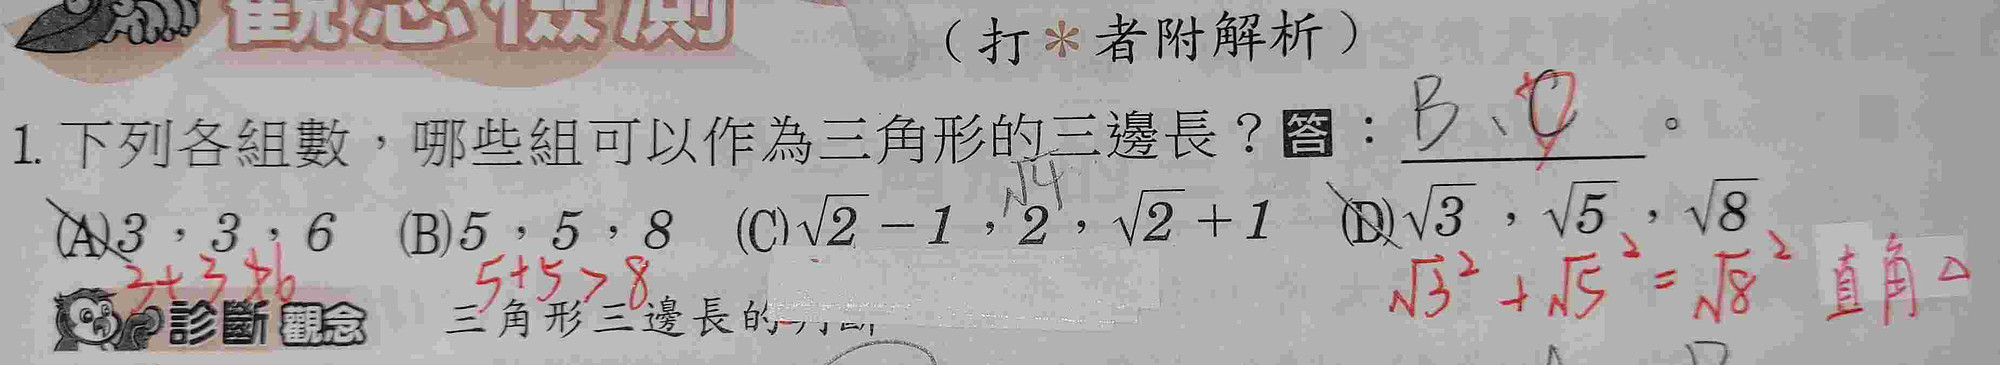 觀念檢測
(打＊者附解析)
1. 下列各組數，哪些組可以作為三角形的三邊長？答：B、C。
√4
(A)3，3，6 (B)5，5，8 (C)√2－1，2，√2＋1 (D)√3，√5，√8
3+3≯6 5+5>8 √3²+√5²=√8² 直角△
診斷觀念 三角形三邊長的